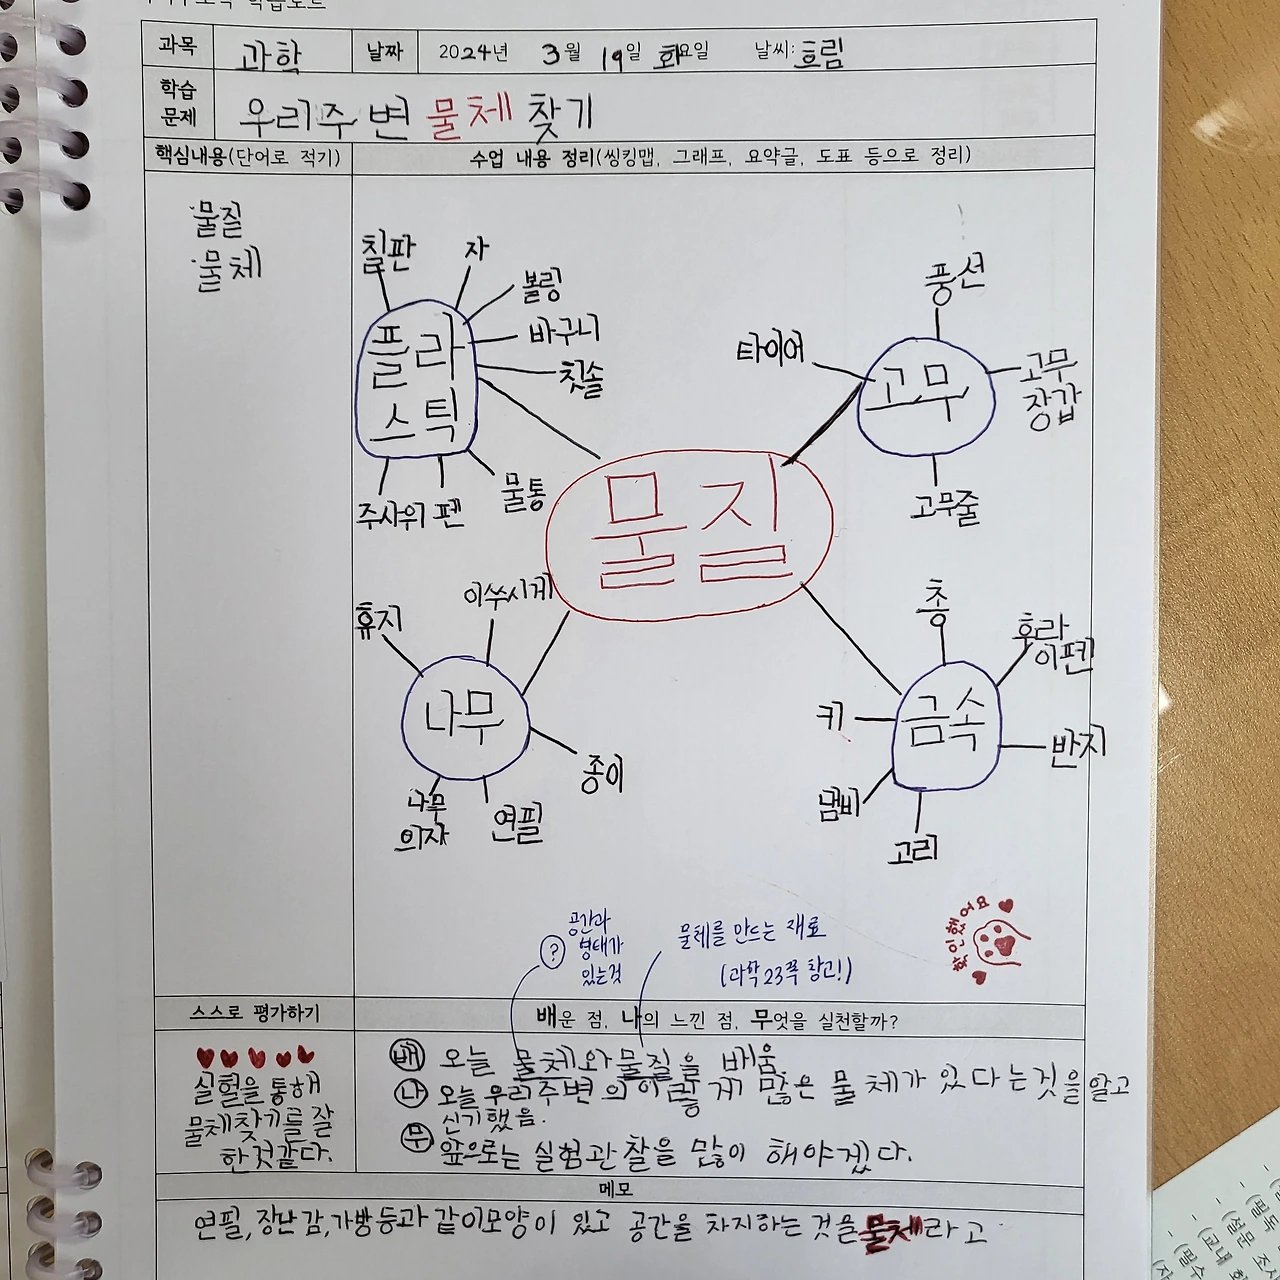 학습노트
과목 과학 날짜 2024년 3월 19일 화요일 날씨: 흐림
학습 문제 우리주변 물체 찾기
핵심내용(단어로 적기) 수업 내용 정리(씽킹맵, 그래프, 요약글, 도표 등으로 정리)
·물질
·물체
칠판
자
볼링
바구니
칫솔
플라
스틱
주사위
펜
물통
풍선
타이어
고무
고무
장갑
고무줄
물질
휴지
이쑤시게
나무
종이
나무
의자
연필
총
후라
이펜
키
금속
반지
냄비
고리
공간과
형태가
있는것
?
물체를 만드는 재료
(과학23쪽 참고!)
확인했어요
스스로 평가하기 배운 점, 나의 느낀 점, 무엇을 실천할까?
실험을 통해
물체찾기를 잘
한것같다.
배 오늘 물체와물질을 배움.
나 오늘 우리주변의 이렇게 많은 물체가 있다는것을 알고
신기했음.
무 앞으로는 실험관찰을 많이 해야겠다.
메모
연필,장난감,가방등과 같이모양이 있고 공간을 차지하는 것을물체라고